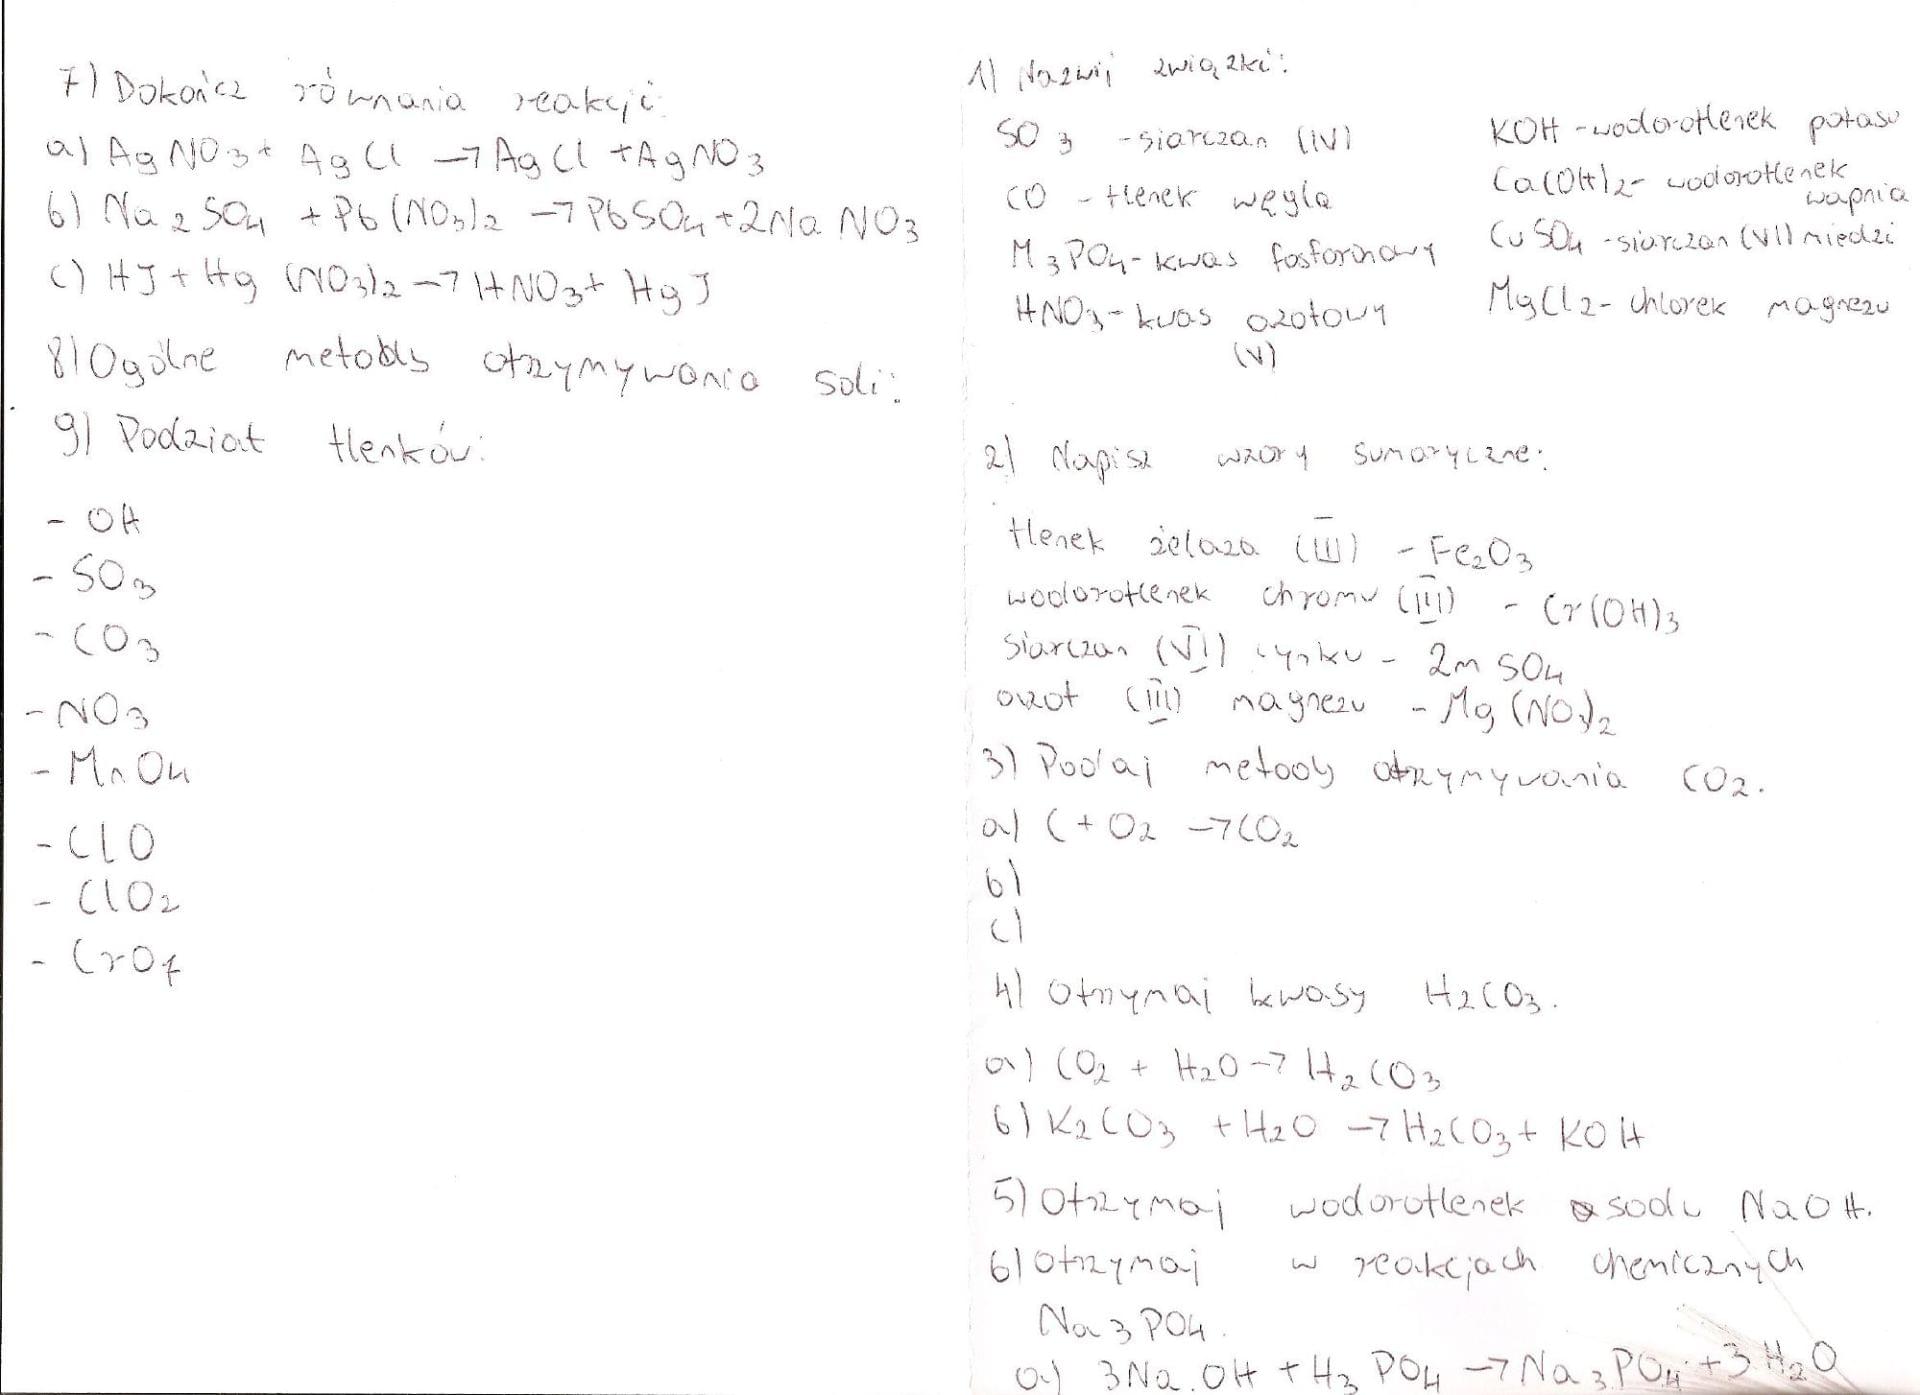 7) Dokończ równania reakcji:
a) AgNO3 + AgCl → AgCl + AgNO3
b) Na2SO4 + Pb(NO3)2 → PbSO4 + 2NaNO3
c) HJ + Hg(NO3)2 → HNO3 + HgJ
8) Ogólne metody otrzymywania soli:
9) Podział tlenków:
- OH
- SO3
- CO3
- NO3
- MnO4
- ClO
- ClO2
- CrO7
1) Nazwij związki:
SO3 - siarczan (IV)
CO - tlenek węgla
M3PO4 - kwas fosforinowy
HNO3 - kwas azotowy
(V)
KOH - wodorotlenek potasu
Ca(OH)2 - wodorotlenek
wapnia
CuSO4 - siarczan (VI) miedzi
MgCl2 - chlorek magnezu
2) Napisz wzory sumaryczne:
tlenek żelaza (III) - Fe2O3
wodorotlenek chromu (III) - Cr(OH)3
siarczan (VI) cynku - 2m SO4
azot (III) magnezu - Mg(NO3)2
3) Podaj metody otrzymywania CO2.
a) C + O2 → CO2
b)
c)
4) Otrzymaj kwasy H2CO3.
a) CO2 + H2O → H2CO3
b) K2CO3 + H2O → H2CO3 + KOH
5) Otrzymaj wodorotlenek sodu NaOH.
6) Otrzymaj w reakcjach chemicznych
Na3PO4.
a) 3NaOH + H3PO4 → Na3PO4 + 3H2O